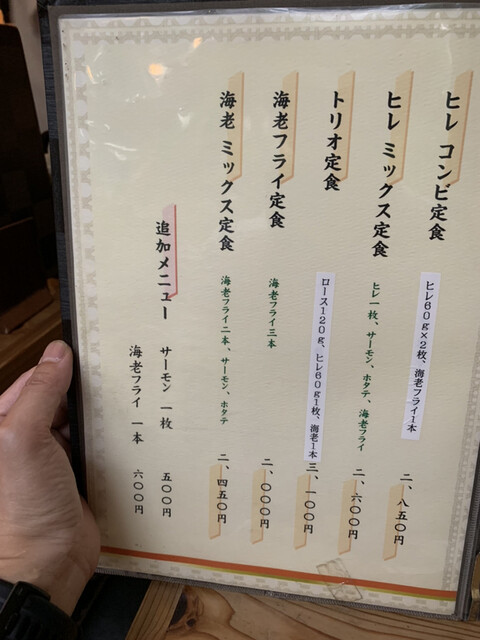 ヒレ コンビ定食
ヒレ60g×2枚、海老フライ1本
二、八五〇円
ヒレ ミックス定食
ヒレ一枚、サーモン、ホタテ、海老フライ
二、六〇〇円
トリオ定食
ロース120g、ヒレ60g1枚、海老1本
三、一〇〇円
海老フライ定食
海老フライ三本
二、〇〇〇円
海老 ミックス定食
海老フライ二本、サーモン、ホタテ
二、四五〇円
追加メニュー
サーモン 一枚 五〇〇円
海老フライ 一本 六〇〇円